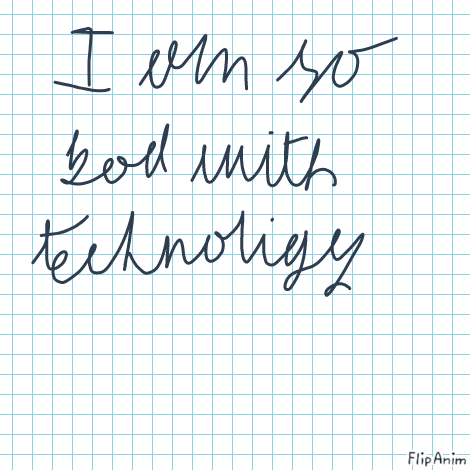 I am so
bad with
technoligy
FlipAnim